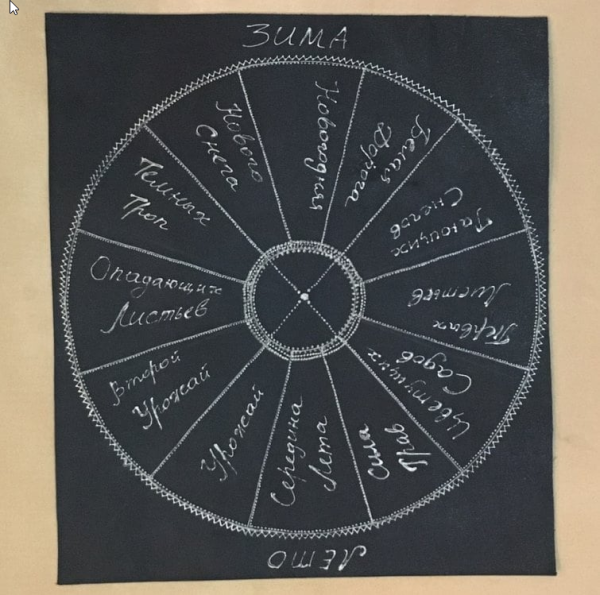 ЗИМА
Новогодняя
Белая
Дорога
Тающих
Снегов
Первых
Листьев
Цветущих
Садов
Сила
Трав
Середина
Лета
Урожай
Второй
Урожай
Опадающих
Листьев
Темных
Троп
Нового
Снега
ЛЕТО